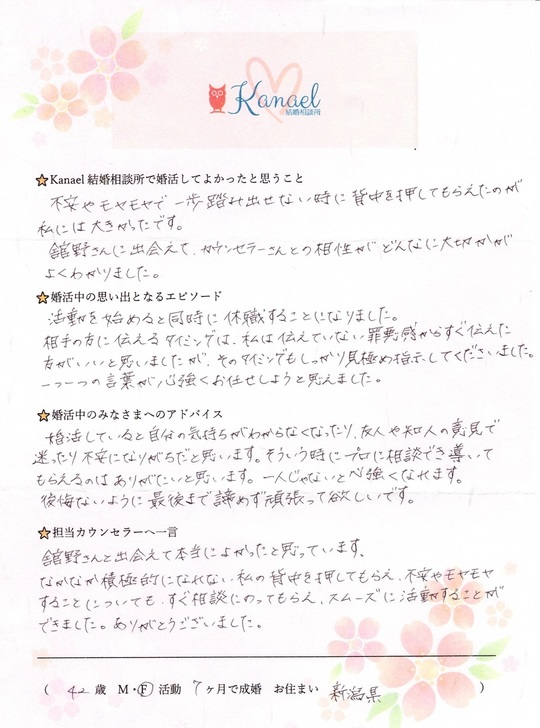 Kanael
結婚相談所
Kanael 結婚相談所で婚活してよかったと思うこと
不安やモヤモヤで一歩踏み出せない時に背中を押してもらえたのが
私には大きかったです。
舘野さんに出会えて、カウンセラーさんとの相性がどんなに大切かが
よくわかりました。
婚活中の思い出となるエピソード
活動を始めると同時に休職することになりました。
相手の方に伝えるタイミングは、私は伝えていない罪悪感からすぐ伝えた
方がいいと思いましたが、そのタイミングもしっかり見極め指示してくださいました。
一つ一つの言葉が心強くお任せしようと思えました。
婚活中のみなさまへのアドバイス
婚活していると自分の気持ちがわからなくなったり、友人や知人の意見で
迷ったり不安になりがちだと思います。そういう時にプロに相談でき導いて
もらえるのはありがたいと思います。一人じゃないと心強くなれます。
後悔ないように最後まで諦めず頑張って欲しいです。
担当カウンセラーへ一言
舘野さんと出会えて本当によかったと思っています。
なかなか積極的になれない私の背中を押してもらえ、不安やモヤモヤ
することについても、すぐ相談にのってもらえ、スムーズに活動することが
できました。ありがとうございました。
( 42 歳 M・F 活動 7 ヶ月で成婚 お住まい 新潟県 )